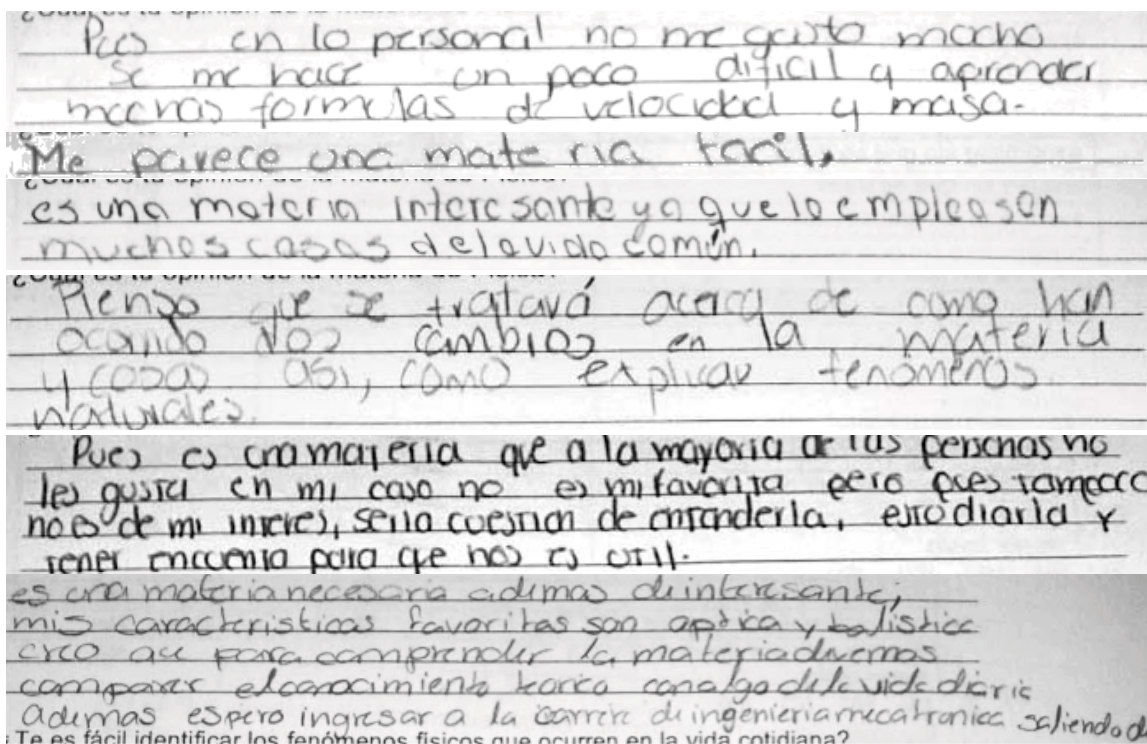 Pues en lo personal no me gusto mucho
se me hace un poco dificil y aprender
muchas formulas de velocidad y masa.
Me parece una materia facil,
¿Cuál es tu opinión de la materia de Física?
es una materia interesante ya que lo empleas en
muchos casos de la vida común.
¿Cuál es tu opinión de la materia de Física?
Pienso que se tratará acerca de como han
ocurrido los cambios en la materia
y cosas asi, como explicar fenómenos
naturales.
Pues es una materia que a la mayoria de las personas no
les gusta en mi caso no es mi favorita pero pues tampoco
no es de mi interes, seria cuestion de entenderla, estudiarla y
tener encuenta para que nos es util.
es una materia necesaria ademas de interesante,
mis caracteristicas favoritas son optica y balistica
creo que para comprender la materia devemos
comparar el conocimiento teorico con algo de la vida diaria
ademas espero ingresar a la carrera de ingenieria mecatronica saliendo d
¿Te es fácil identificar los fenómenos físicos que ocurren en la vida cotidiana?